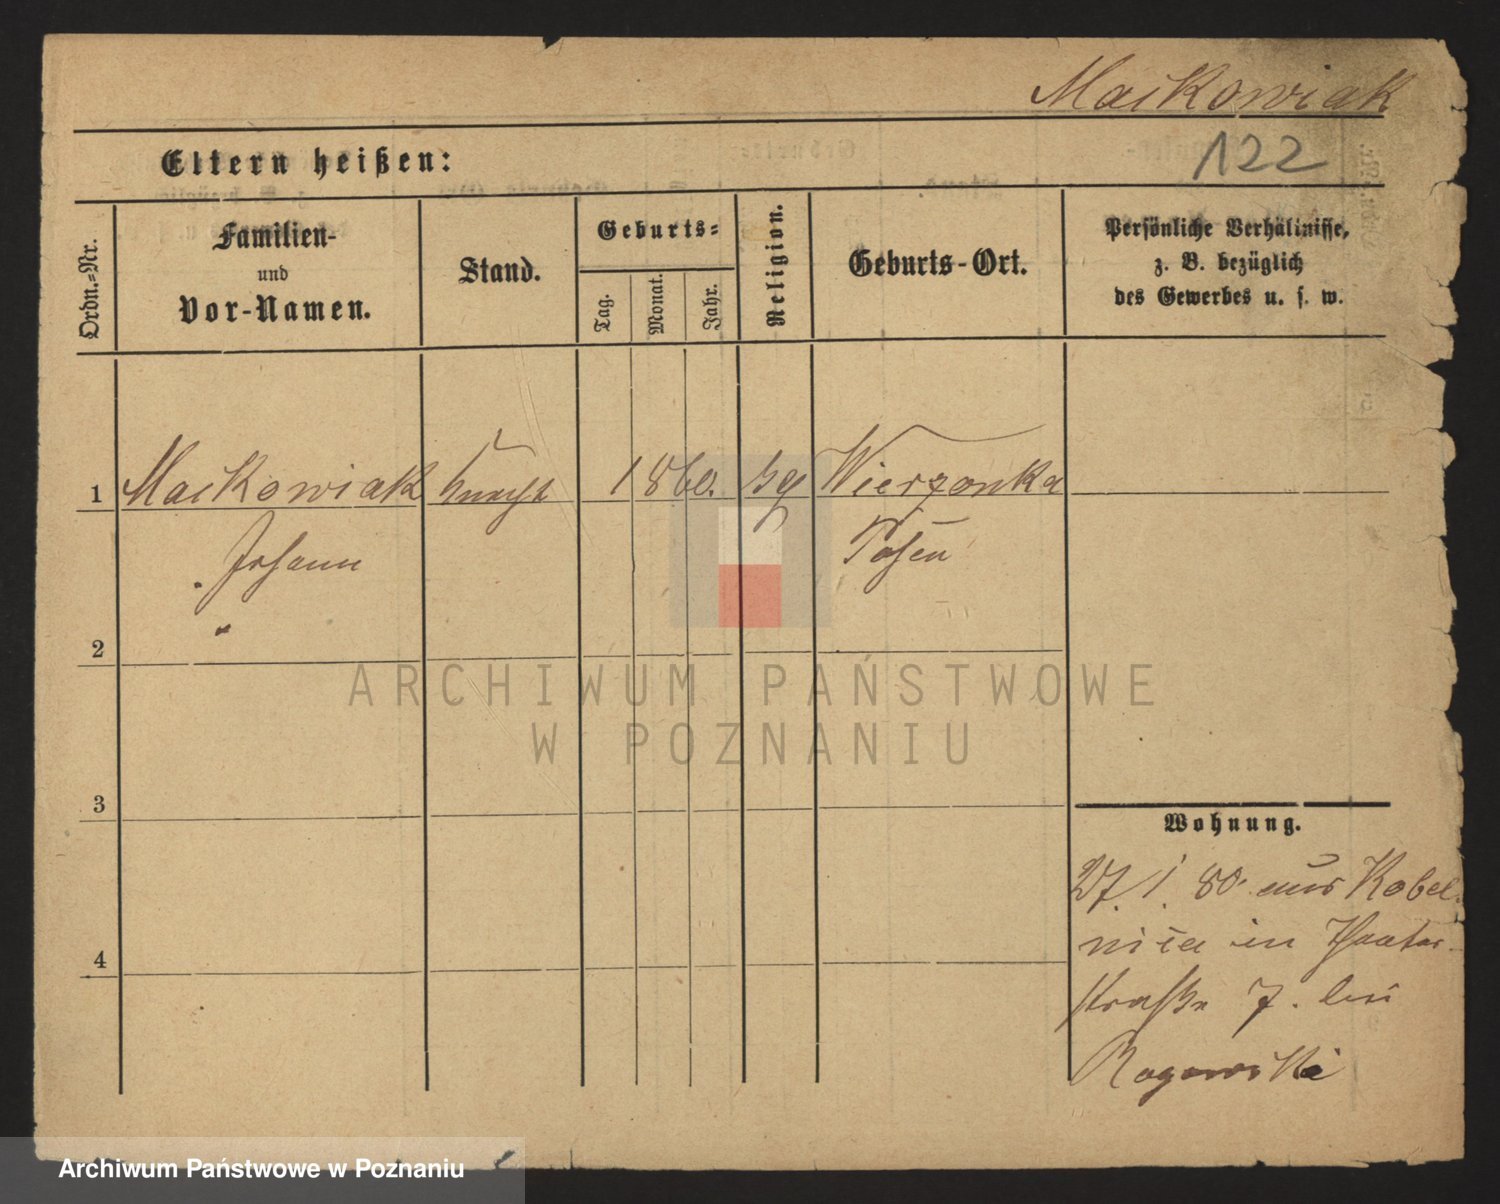 Maćkowiak
122
Eltern heißen:
Ordn.-Nr.
Familien-
und
Vor-Namen.
Stand.
Geburts-
Tag.
Monat.
Jahr.
Religion.
Geburts-Ort.
Persönliche Verhältnisse,
z. B. bezüglich
des Gewerbes u. s. w.
1 Maćkowiak Knecht 1860. Wierzonka
Johann Posen
2
3
4
Wohnung.
27. 1. 80. aus Kobel-
nica in
straße 7. bei
Rogowski
ARCHIWUM PAŃSTWOWE
W POZNANIU
Archiwum Państwowe w Poznaniu